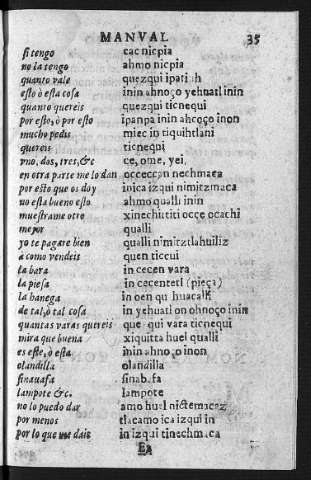 MANVAL 35
si tengo cac nicpia
no la tengo ahmo nicpia
quanto vale quezqui ipatiuh
esto ò esta cosa inin ahnoço yehuatl inin
quanto quereis quezqui ticnequi
por esto, ò por esto ipanpa inin ahcoço inon
mucho pedis miec in tiquihtlani
quereis ticnequi
vno, dos, tres, &c ce, ome, yei,
en otra parte me lo dan occeccan nechmaca
por esto que os doy inica izqui nimitzmaca
no esta bueno esto ahmo qualli inin
muestrame otro xinechittiti occe ocachi
mejor qualli
yo te pagare bien qualli nimitztlahuiliz
a como vendeis quen ticcui
la bara in cecen vara
la piesa in cecentetl (pieça)
la hanega in cen quahuacalli
de tal, ò tal cosa in yehuatl on ohnoço inin
quantas varas quereis quezqui vara ticnequi
mira que buena xiquitta huel qualli
es este, ò esta inin ahnoço inon
olandilla olandilla
sinauafa sinabafa
lampote &c. lampote
no lo puedo dar amo huel nictemacaz
por menos tlacamo ica izqui in
por lo que me dais in izqui tinechmaca